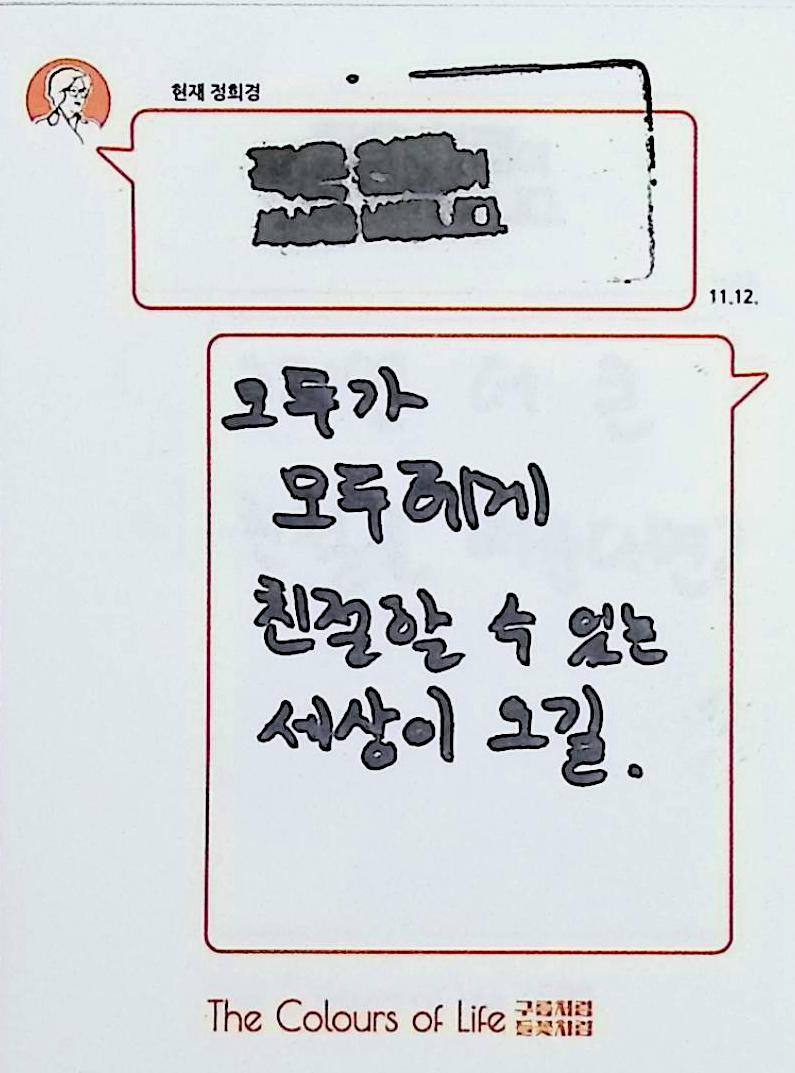 현재 정희경
11.12.
모두가
모두에게
친절할 수 있는
세상이 오길.
The Colours of Life 구름처럼
들꽃처럼